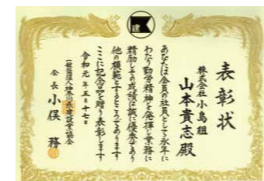 表彰状
株式会社小島組
山本貴志殿
あなたは会員の社員として永年に
わたり勤労精神を発揮し業務に
精励しその成績は誠に優秀であり
他の模範とするところであります
ここに記念品を贈り表彰します
令和元年五月十七日
会長小俣務